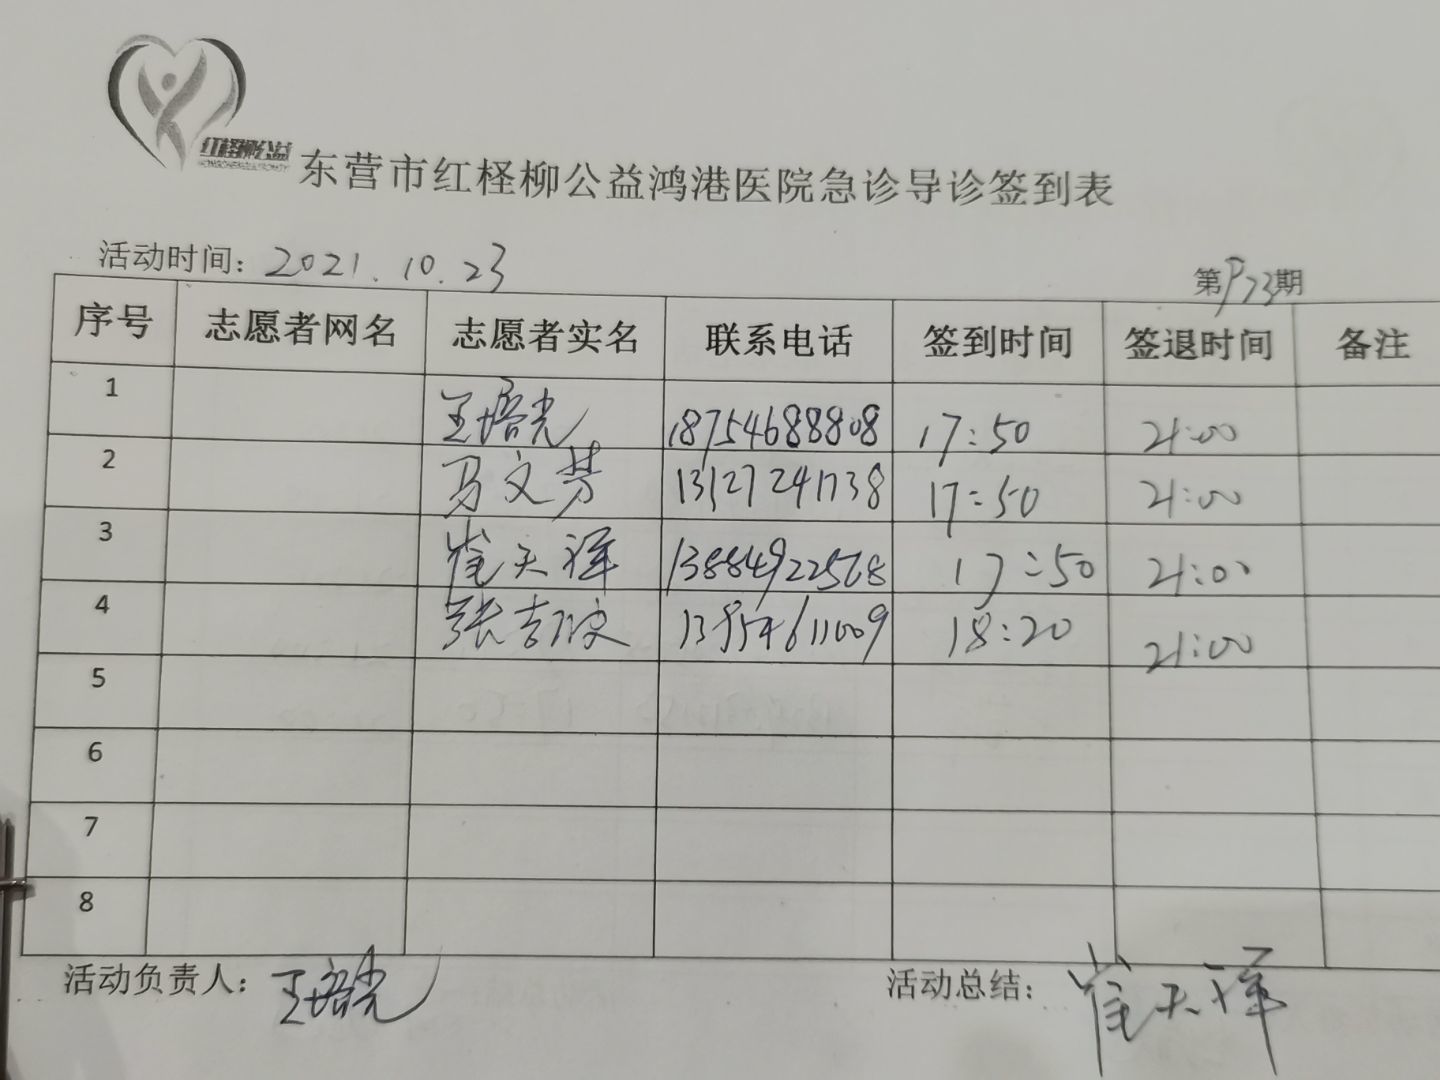 红柽柳公益
东营市红柽柳公益鸿港医院急诊导诊签到表
活动时间：2021.10.23
第973期
序号 志愿者网名 志愿者实名 联系电话 签到时间 签退时间 备注
1 王培光 18754688808 17:50 21:00
2 马文芳 13127241738 17:50 21:00
3 崔天祥 13884922568 17:50 21:00
4 张吉波 13954611009 18:20 21:00
5
6
7
8
活动负责人：王培光
活动总结：崔天祥